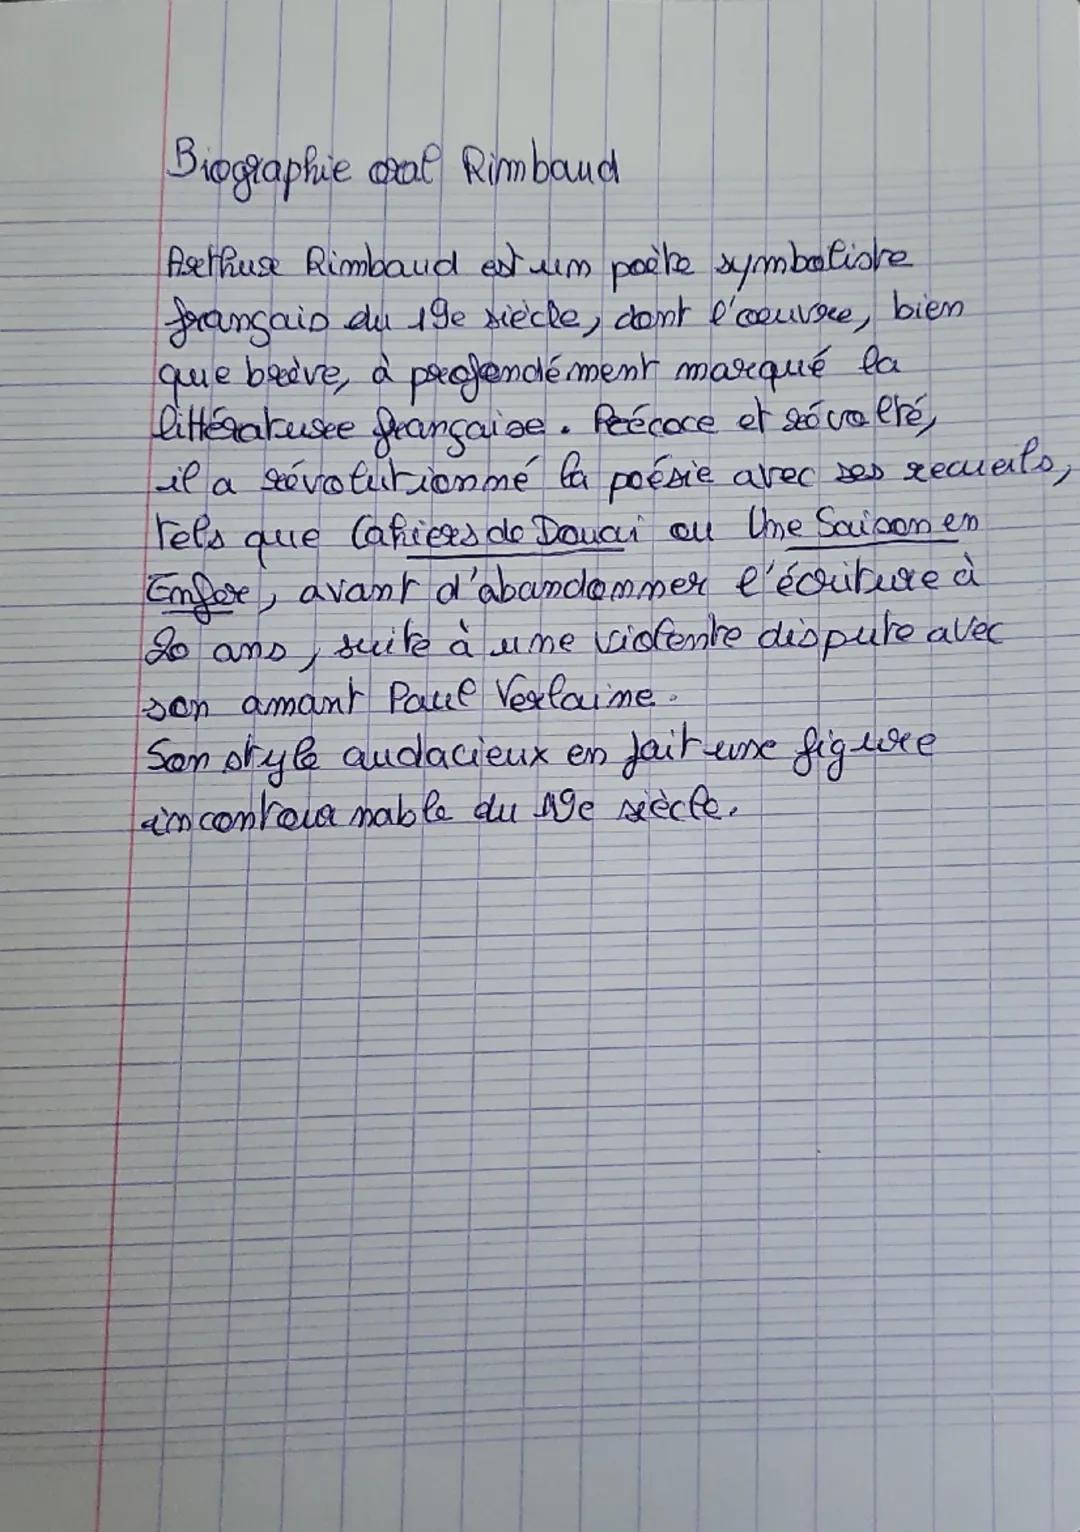 Biographie oral Rimbaud
Arthur Rimbaud est un poète symboliste
français du 19e siècle, dont l'oeuvre, bien
que brève, à profondément marqué la
littérature française. Précoce et révolté,
il a révolutionné la poésie avec ses recueils,
tels que Cahiers de Douai ou Une Saison en
Enfer, avant d'abandonner l'écriture à
20 ans, suite à une violente dispute avec
son amant Paul Verlaine.
Son style audacieux en fait une figure
incontournable du 19e siècle.